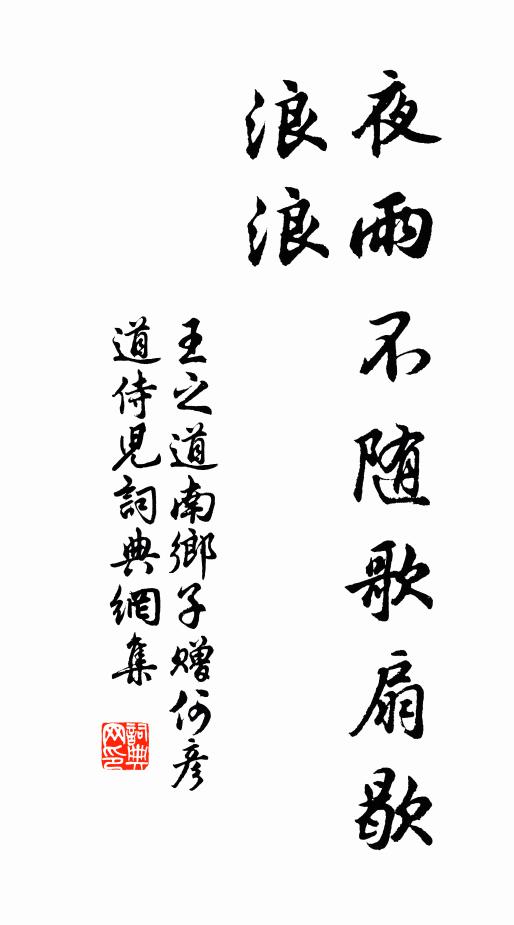 夜雨不随歌扇歇
浪浪
王之道南鄉子贈何彦
道侍兒詞典網集
詞典网印